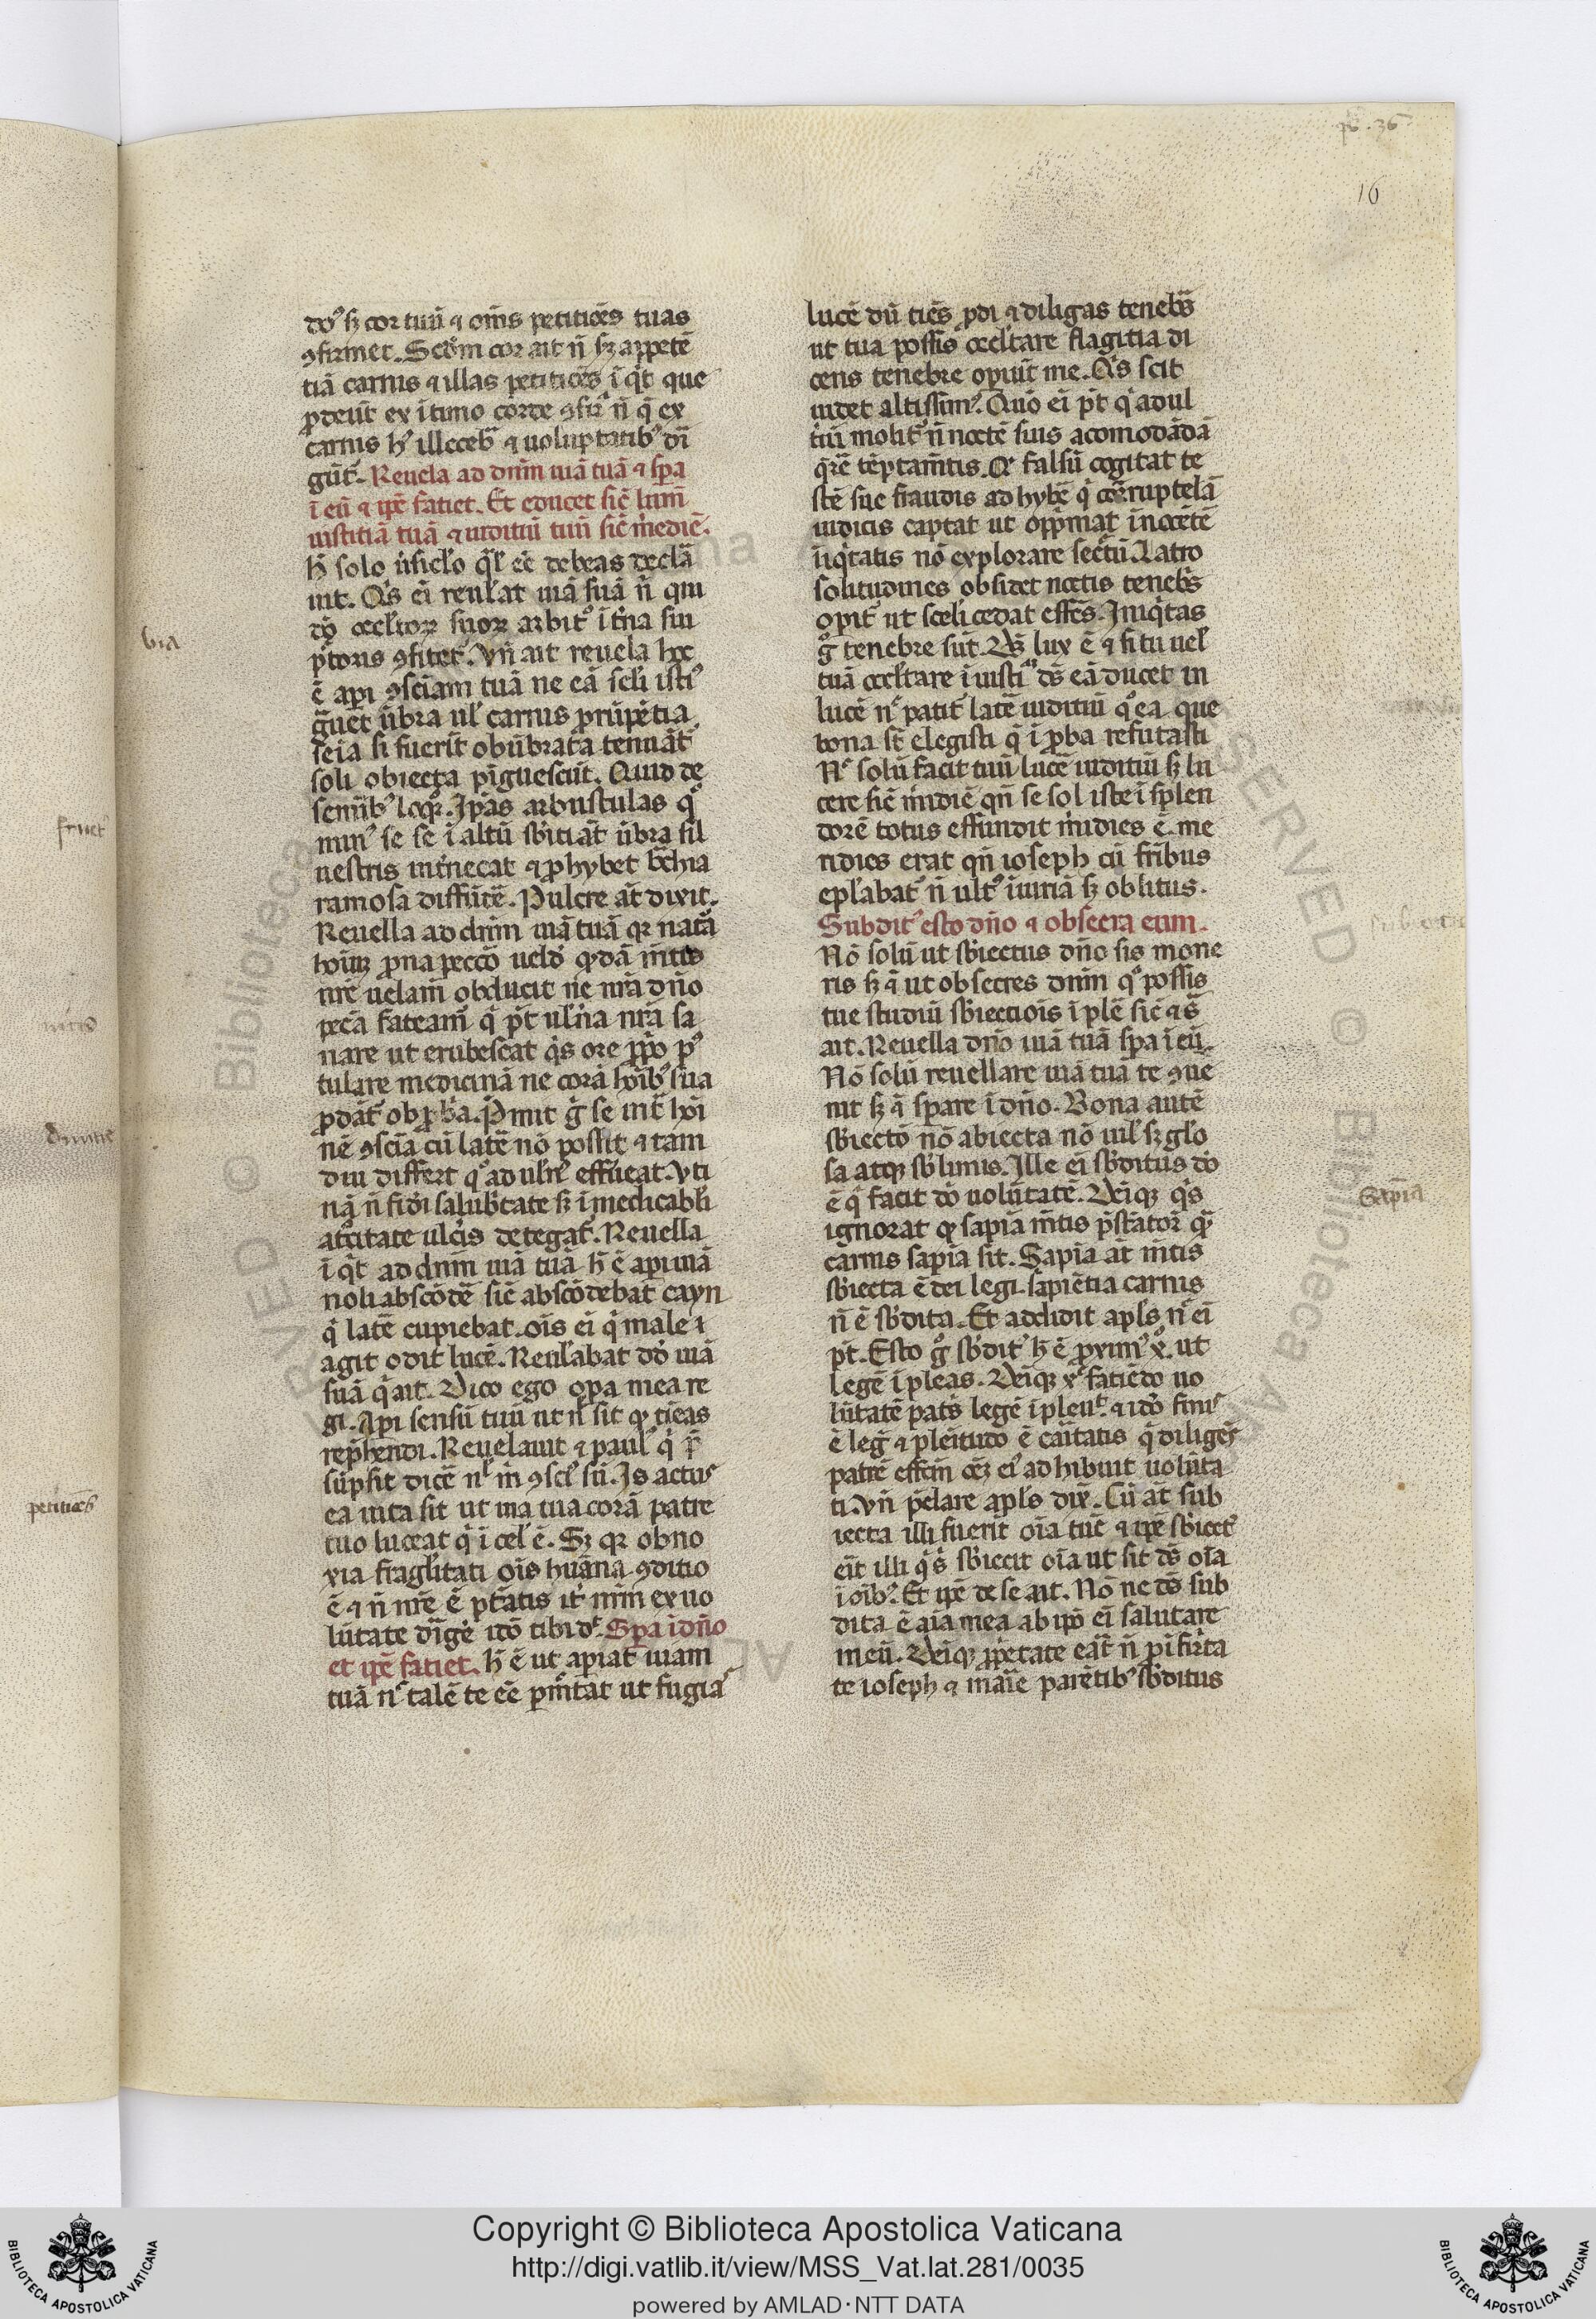 ps. 36
16
dō᷒ sꝫ cor tuū ⁊ om̄s petitiōēs tuas
ꝯfirmet. Scd̄m cor ait n̄ sꝫ appetē
tiā carnis ⁊ illas petitiōēs īq̇t que
ꝓdeūt ex ītimo corde ꝯfir n̄ q̄ ex
carnis illecebᷓ ⁊ uoluptatib᷒ diī
gūt᷑. Reuela ad dn̄m uiā tuā ⁊ sꝑa
ī eū ⁊ ip̄e fatiet. Et educet sic̄ lum̄
iustitiā tuā ⁊ iuditiū tuū sic̄ m̄ediē.
solo debeas declā
uit. Qis ei̅ reul̓at uiā suā n̄ qui
ocl̓toꝝ suoꝝ arbit᷒ īt̓na sui
ꝯfitet᷑. Vn̄ ait reuela hoc
ē aꝑi ꝯsciāam tuā ne eā
g̃uet ūbra ul̓ carnis prūpētia.
seīa si fuerīt obūbrata tenuāt᷑
soli obiecta pīguescūt. Quid de
semīb᷒ loqr᷑. Ip̄as arbustulas q̊
min᷒ se se ī altū sb̓itiāt ūbra sil
uestris int̓necat ⁊ ꝓhybet bᷓchia
ramosa diffūdē. Pulcre at̄ dixit.
Reuella ad dn̄m uiā tuā qꝛ natᷓ
hoīuꝫ ꝓna pecc̄o uelō qͦdā m̄tis
nr̄e uelam̄ obducit ne nr̄a dn̄o
pecc̄a fateam᷑ q̇ pt̄ uln̓a nr̄a sa
nare ut erubescat q̇s ore ꝓp̄o p᷒
tulare medicinā ne corā hoīb᷒ sua
ꝓdāt᷑ obꝓb̓a. P̄mit g̊ se int̄ hoī
nē ꝯsciā cū latē nō possit ⁊ tam
diu differt q̊ ad uln̓᷒ efflueat. Uti
nā n̄ fidi salub̓tate sꝫ īmedicabl̓i
at̊citate ulc̓is detegat᷑. Reuella
īq̇t ad dn̄m uiā tuā h̄ ē aꝑi uiā
noli abscōdē sic̄ abscōdebat cayn
q̇ latē cupiebat. ois̄ ei̅ q̇ male ı
agit odit lucē. Reul̓abat dd̓ uiā
suā q̇ ait. Dico ego oꝑa mea re
gi. Aꝑi sensū tuū ut n̄ sit qͦ tīeas
rep̄hendi. Reuelauit ⁊ paul᷒ q̇
sūpsit dicē nl̓ m̄ ꝯsci᷒ sū. Is actu᷒
ea uita sit ut uia tua corā patre
tuo luceat q̇ ī cel̓ ē. Sꝫ qꝛ obno
xia fragl̓itati ois̄ huāna ꝯditio
ē ⁊ n̄ nr̄e ē pt̄atis it̓ nr̄m ex uo
lūtate dīgē idō tibi d᷒. Sꝑa ī dn̄o
et ip̄e fatiet. h̄ ē ut aꝑiat uiam
tuā n᷒ talē te eē ꝑm̄tat ut fugia᷒
lucē dū tiēs ꝓdi ⁊ diligas tenebᷓs
ut tua possis ocl̓tare flagitia di
cens tenebre opiūt me. Q̇s scit
uidet altissim᷒. Quō ei̅ pt̄ q̇ adul
t̓iū molit᷑ īnocētē suis acomodādā
q̄rē tēptam̄tis. Qͦ falsū cogitat te
stē sue fraudis adhybē q̇ corruptelā
iudicis captat ut opp̄mat īnocētē
īiq̇tatis nō explorare sec̄tū. Latro
solitudines obsidet noctis teneb̓s
oꝑit᷑ ut scel̓i cedat effc̄s. Iniq̇tas
g̊ tenebre sūt. D̄s lux ē ⁊ si tu uel̓
tuā ocl̓tare īiustiᷓ d̄s eā ducet in
lucē n᷒ patit᷑ latē iuditiū q̊ ea que
bona st̄ elegisti q̄ īꝓba refutasti
N᷒ solū facit tuū lucē iuditiū sꝫ lu
cere sic̄ m̄idiē qn̄ se sol iste ī splen
dorē totus effundit m̄idies ē. me
ridies erat qn̄ ioseph cū fr̄ibus
epl̓abat᷑ n̄ ult᷒ īiuriā sꝫ oblitus.
Subdit᷒ esto dn̄o ⁊ obsecra eum.
Nō solū ut sb̓iectus dn̄o sis mone
ris sꝫ ā ut obsecres dn̄m q̊ possis
tue studiū sb̓iectiois̄ īplē sic̄ ⁊
ait. Reuella dn̄o uiā tuā sꝑa ī eū.
Nō solū reuellare uiā tuā te ꝯue
nit sꝫ ā sꝑare ī dn̄o. Bona autē
sb̓iectō nō abiecta nō uil̓ sꝫ gl̓o
sa atqꝫ sb̓limis. Ille ei̅ sb̓ditus dō
ē q̇ facit dō uolūtatē. Deiqꝫ q̇s
ignorat qͦ sapīa m̄tis p̄statoꝛ qᷓ
carnis sapīa sit. Sapīa at̄ m̄tis
sb̓iecta ē dei legi. sapiētia carnis
n̄ ē sb̓dita. Et addidit apl̓s n᷒ ei̅
pt̄. Esto g̊ sb̓dit᷒ h̄ ē ꝓxim᷒ x̊. ut
legē īpleas. Deiqꝫ x᷒ fatiēdo uo
lūtatē pat̓s legē īpleu᷑. ⁊ idō fini᷒
ē leg̃ ⁊ pleītudo ē cāitatis q̇ diligēs
patrē ad hibuit uolūta
ti. Vn̄ apl̓s dix̄. Cū at̄ sub
iecta illi fuerīt oīa tūc ⁊ ip̄e sb̓iect᷒
eīt illi q̇ s̓ sb̓iecit oīa ut sit d̄s oīa
ī oīb᷒. Et ip̄e de se ait. Nō ne dō sub
dita ē aīa mea ab ip̄o ei̅ salutare
meū. Deiqꝫ ꝓp̄etate
te ioseph ⁊ maīe parētib᷒ sb̓ditus
bia
fruct᷒
petitiōēs
Sapīa
Copyright © Biblioteca Apostolica Vaticana
http://digi.vatlib.it/view/MSS_Vat.lat.281/0035
powered by AMLAD·NTT DATA
BIBLIOTECA APOSTOLICA VATICANA
BIBLIOTECA APOSTOLICA VATICANA